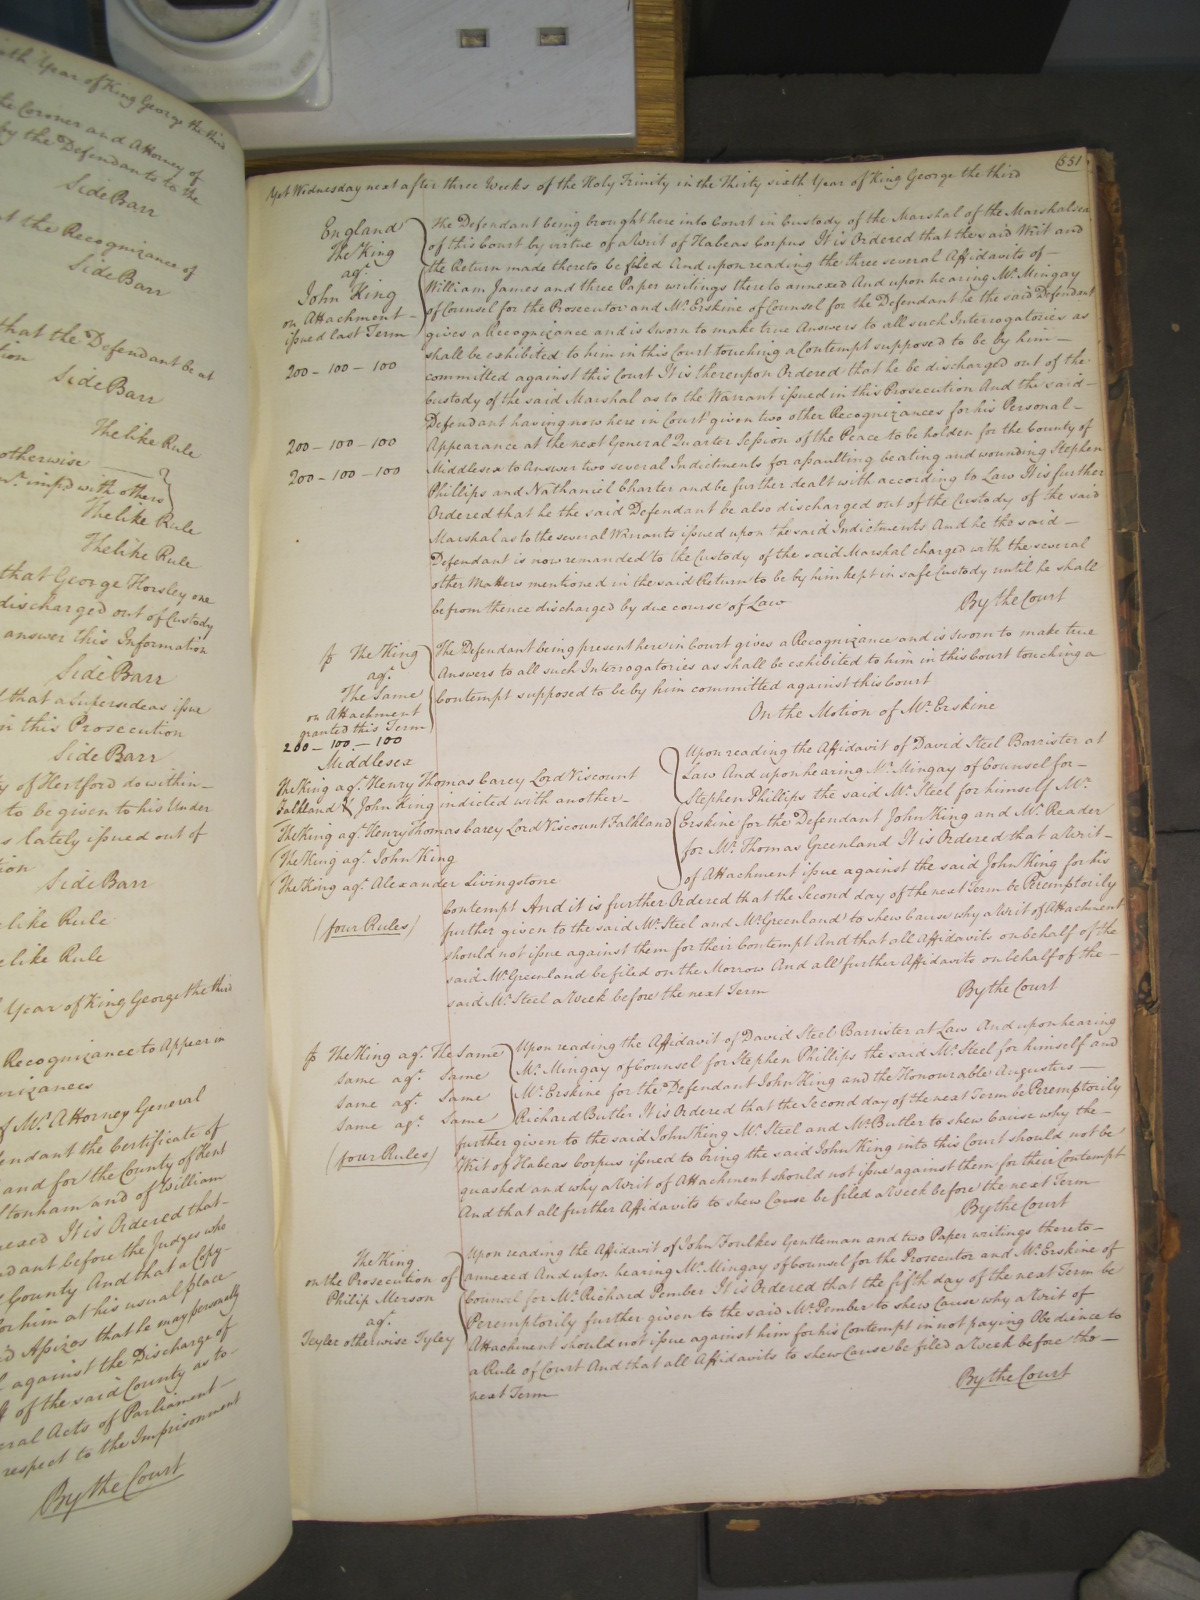 ixth Year of King George the third
the Coroner and Attorney of
by the Defendants to the
Side Barr
at the Recognizance of
Side Barr
that the Defendant be at
tion
Side Barr
The like Rule
otherwise
impd with others
The like Rule
The like Rule
that George Horsley one
discharged out of Custody
answer this Information
Side Barr
that a Supersedeas issue
in this Prosecution
Side Barr
y of Hertford do within
to be given to his Under
s lately issued out of
ion
Side Barr
e like Rule
e like Rule
Year of King George the third
Recognizance to Appear in
nizances
of Mr. Attorney General
endant the Certificate of
and for the County of Kent
ltenham and of William
nexed It is Ordered that
ndant before the Judges who
County And that a Copy
for him at his usual place
d Assizes that he may personally
against the Discharge of
ff of the said County as to
eral Acts of Parliament
respect to the Imprisonment
By the Court
551
Yet Wednesday next after three Weeks of the Holy Trinity in the Thirty sixth Year of King George the third
England
The King
agt.
John King
on Attachment
issued last Term
200 - 100 - 100
200 - 100 - 100
200 - 100 - 100
The Defendant being brought here into Court in Custody of the Marshal of the Marshalsea
of this Court by virtue of a Writ of Habeas Corpus It is Ordered that the said Writ and
the Return made thereto be filed And upon reading the three several Affidavits of
William James and three Paper writings thereto annexed And upon hearing Mr. Mingay
of Counsel for the Prosecutor and Mr. Erskine of Counsel for the Defendant he the said Defendant
gives a Recognizance and is Sworn to make true Answers to all such Interrogatories as
shall be exhibited to him in this Court touching a Contempt supposed to be by him
committed against this Court It is thereupon Ordered that he be discharged out of the
Custody of the said Marshal as to the Warrant issued in this Prosecution And the said
Defendant having now here in Court given two other Recognizances for his Personal
Appearance at the next General Quarter Session of the Peace to be holden for the County of
Middlesex to Answer two several Indictments for assaulting beating and wounding Stephen
Phillips and Nathaniel Charter and be further dealt with according to Law It is further
Ordered that he the said Defendant be also discharged out of the Custody of the said
Marshal as to the several Warrants issued upon the said Indictments And he the said
Defendant is now remanded to the Custody of the said Marshal charged with the several
other Matters mentioned in the said Return to be by him kept in safe Custody until he shall
be from thence discharged by due course of Law
By the Court
The King
agt.
The Same
on Attachment
granted this Term
200 - 100 - 100
The Defendant being present here in Court gives a Recognizance and is Sworn to make true
Answers to all such Interrogatories as shall be exhibited to him in this Court touching a
Contempt supposed to be by him committed against this Court
On the Motion of Mr. Erskine
Middlesex
The King agt. Henry Thomas Carey Lord Viscount
Falkland & John King indicted with another
The King agt. Henry Thomas Carey Lord Viscount Falkland
The King agt. John King
The King agt. Alexander Livingstone
(four Rules)
Upon reading the Affidavit of David Steel Barrister at
Law And upon hearing Mr. Mingay of Counsel for
Stephen Phillips the said Mr. Steel for himself Mr.
Erskine for the Defendant John King and Mr. Reader
for Mr. Thomas Greenland It is Ordered that a Writ
of Attachment issue against the said John King for his
Contempt And it is further Ordered that the Second day of the next Term be Peremptorily
further given to the said Mr. Steel and Mr. Greenland to shew Cause why a Writ of Attachment
should not issue against them for their Contempt And that all Affidavits on behalf of the
said Mr. Greenland be filed on the Morrow And all further Affidavits on behalf of the
said Mr. Steel a Week before the next Term
By the Court
The King agt. The Same
Same agt. Same
Same agt. Same
Same agt. Same
(four Rules)
Upon reading the Affidavit of David Steel Barrister at Law And upon hearing
Mr. Mingay of Counsel for Stephen Phillips the said Mr. Steel for himself and
Mr. Erskine for the Defendant John King and the Honourable Augustus
Richard Butler It is Ordered that the Second day of the next Term be Peremptorily
further given to the said John King Mr. Steel and Mr. Butler to shew Cause why the
Writ of Habeas Corpus issued to bring the said John King into this Court should not be
quashed and why a Writ of Attachment should not issue against them for their Contempt
And that all further Affidavits to shew Cause be filed a Week before the next Term
By the Court
The King
on the Prosecution of
Philip Merson
agt.
Teyler otherwise Tyley
Upon reading the Affidavit of John Foulkes Gentleman and two Paper writings thereto
annexed And upon hearing Mr. Mingay of Counsel for the Prosecutor and Mr. Erskine of
Counsel for Mr. Richard Pember It is Ordered that the fifth day of the next Term be
Peremptorily further given to the said Mr. Pember to shew Cause why a Writ of
Attachment should not issue against him for his Contempt in not paying Obedience to
a Rule of Court And that all Affidavits to shew Cause be filed a Week before the
next Term
By the Court